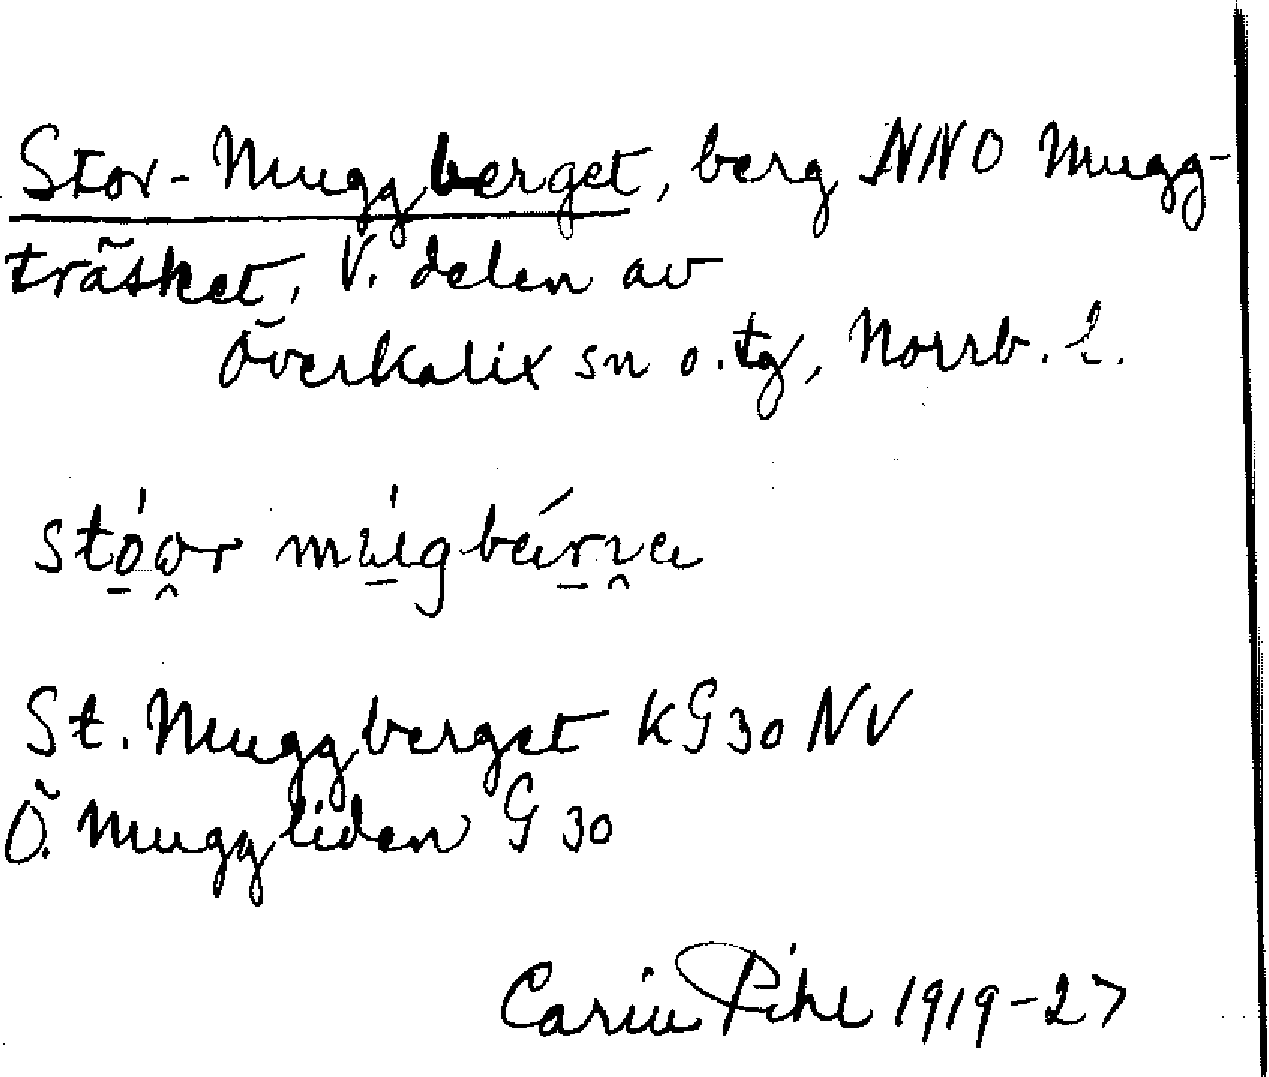 Stor-Muggberget, berg NNO Mugg-
träsket, V. delen av
Överkalix sn o. tg, Norrb. l.
stó̱ω̯r mu̱ígbár̠ɿ̯a
St. Muggberget KG30 NV
Ö. Muggliden G 30
Carin Pihl 1919-27